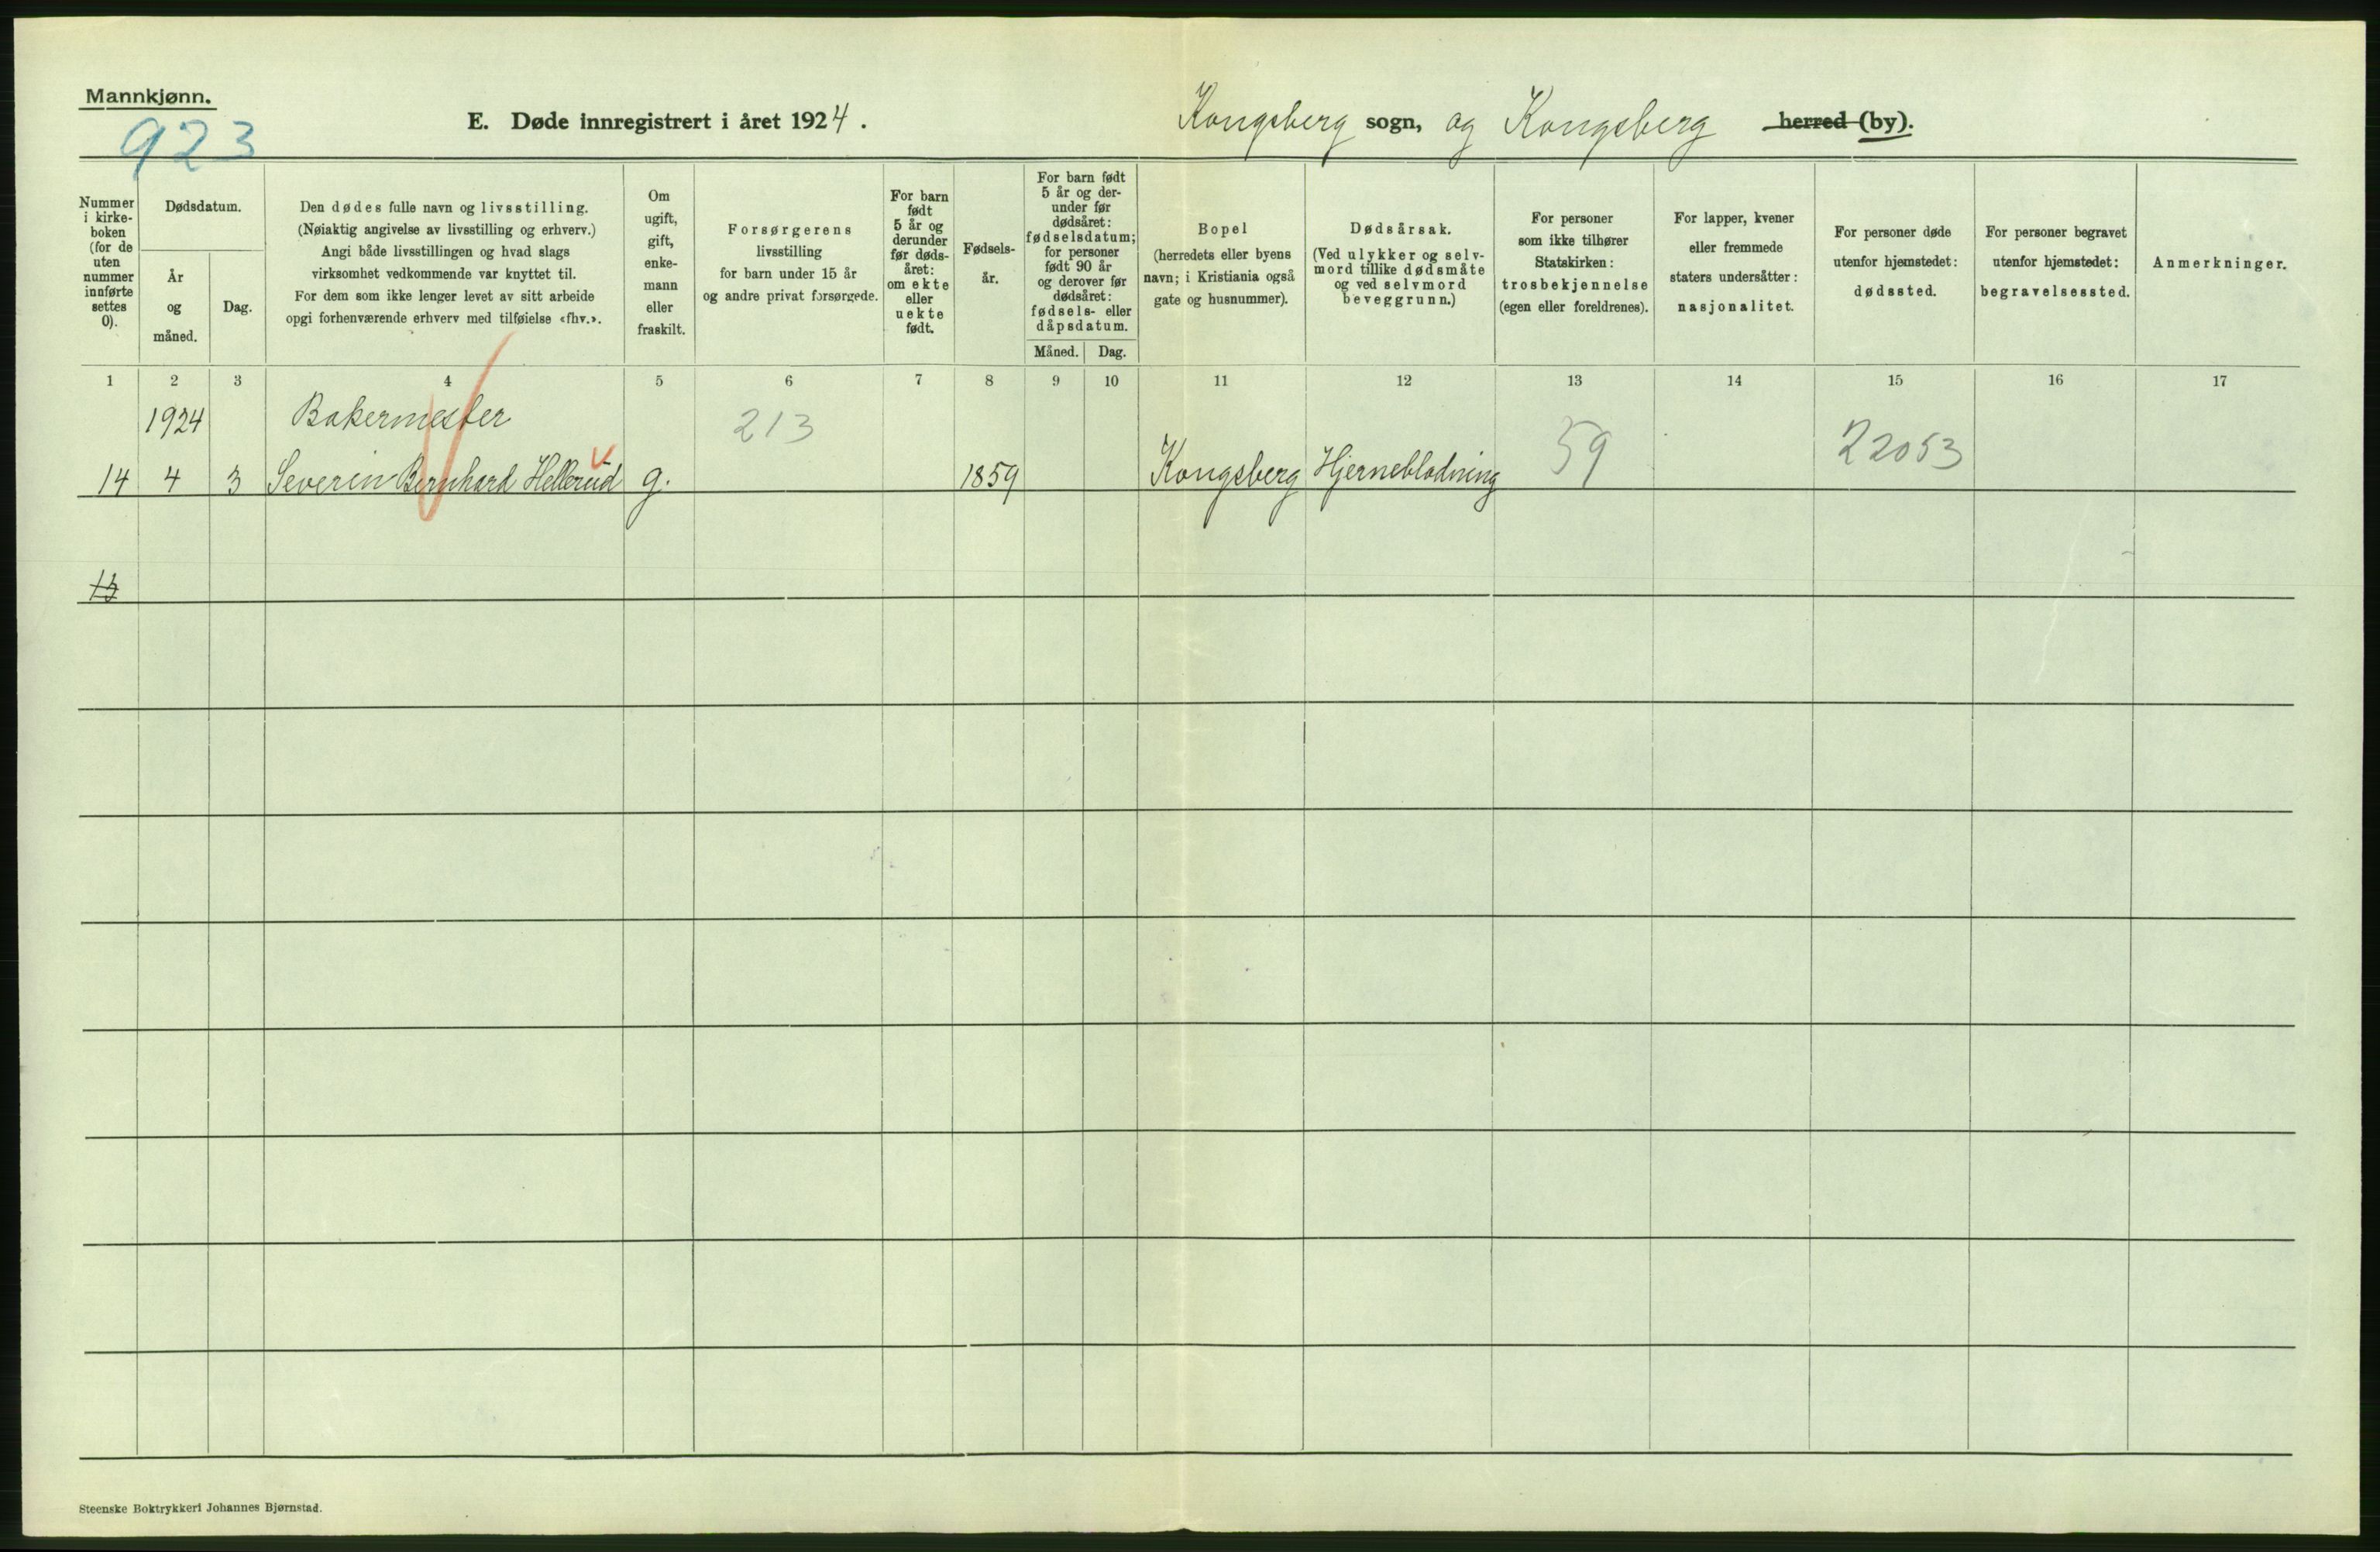 Mannkjønn.
923
E. Døde innregistrert i året 1924.
Kongsberg sogn, og Kongsberg herred (by).
Nummer
i kirke-
boken
(for de
uten
nummer
innførte
settes
0).
Dødsdatum.
År
og
måned.
Dag.
Den dødes fulle navn og livsstilling.
(Nøiaktig angivelse av livsstilling og erhverv.)
Angi både livsstillingen og hvad slags
virksomhet vedkommende var knyttet til.
For dem som ikke lenger levet av sitt arbeide
opgi forhenværende erhverv med tilføielse «fhv.».
Om
ugift,
gift,
enke-
mann
eller
fraskilt.
Forsørgerens
livsstilling
for barn under 15 år
og andre privat forsørgede.
For barn
født
5 år og
derunder
før døds-
året:
om ekte
eller
uekte
født.
Fødsels-
år.
For barn født
5 år og der-
under før
dødsåret:
fødselsdatum;
for personer
født 90 år
og derover før
dødsåret:
fødsels- eller
dåpsdatum.
Måned. Dag.
Bopel
(herredets eller byens
navn; i Kristiania også
gate og husnummer).
Dødsårsak.
(Ved ulykker og selv-
mord tillike dødsmåte
og ved selvmord
beveggrunn.)
For personer
som ikke tilhører
Statskirken:
trosbekjennelse
(egen eller foreldrenes).
For lapper, kvener
eller fremmede
staters undersåtter:
nasjonalitet.
For personer døde
utenfor hjemstedet:
dødssted.
For personer begravet
utenfor hjemstedet:
begravelsessted.
Anmerkninger.
1 2 3 4 5 6 7 8 9 10 11 12 13 14 15 16 17
1924 Bakermester 213
14 4 3 Severin Bernhard Hellerud g. 1859 Kongsberg Hjerneblødning 59 22053
Steenske Boktrykkeri Johannes Bjørnstad.